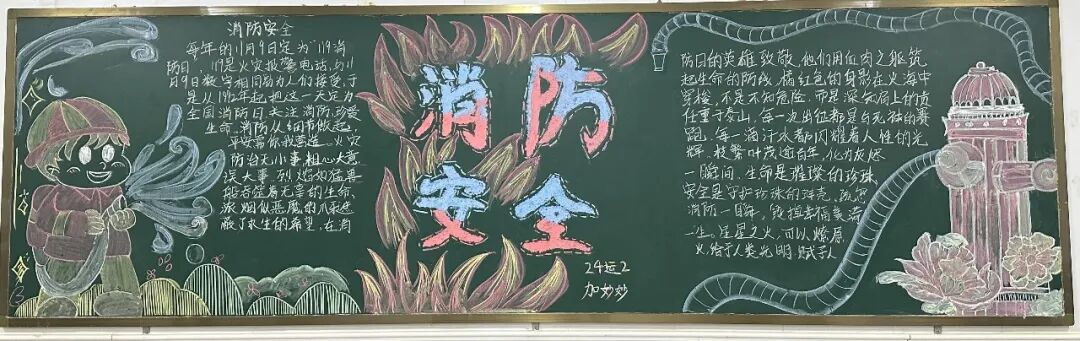 消防安全
每年的11月9日定为"119消
防日",119是火灾报警电话,与11
月9日数字相同易为人们接受,于
是从1992年起把这一天定为
全国消防日关注消防,珍爱
生命,消防从细节做起,
平安 火灾
防治无小事,粗心大意
误大事 烈焰如猛兽
般吞噬着无辜的生命,
浓烟似恶魔的爪
蔽了求生的希望,在消
消防
安全
24运2
加妙妙
防日的英雄致敬,他们用血肉之躯筑
起生命的防线,橘红色的身影在火海中
穿梭,不是不知危险,而是深知肩上的责
任重于泰山,每一次出征都是与死神的赛
跑,每一滴汗水都闪耀着人性的光
辉,枝繁叶茂逾百年,化为灰烬
一瞬间,生命是璀璨的珍珠,
安全是守护珍珠的
消防一旦 幸福
一生,星星之火,可以燎原
火给予人类光明,赋予人